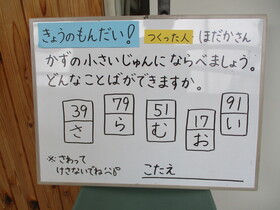 きょうのもんだい!
つくった人 ほだかさん
かずの小さいじゅんにならべましょう。
どんなことばができますか。
39 79 51 17 91
さ ら む お い
※さわって
けさないでね
こたえ